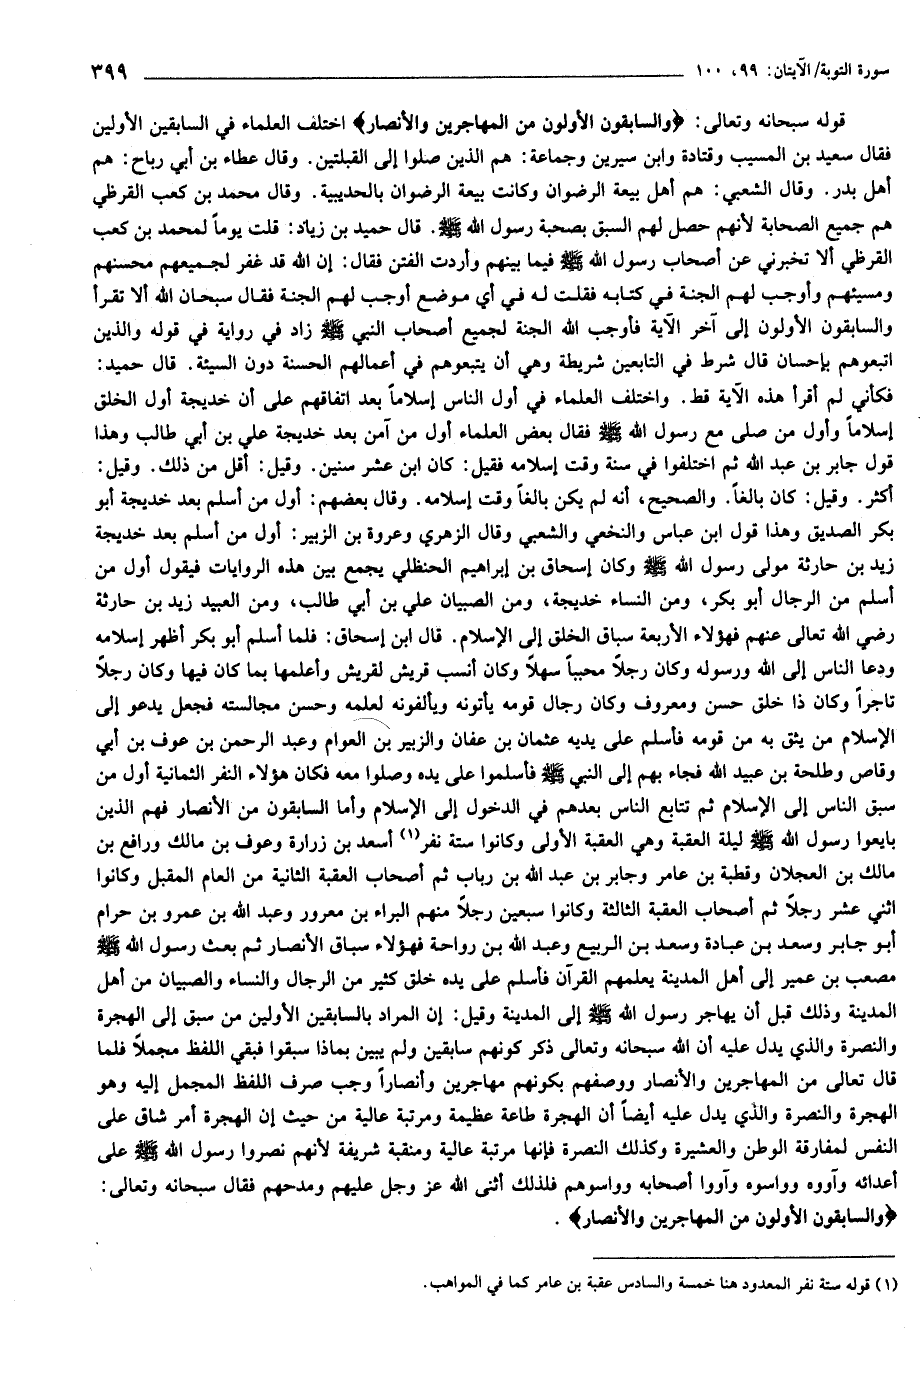 سورة التوبة/ الآيتان: ٩٩، ١٠٠
٣٩٩
قوله سبحانه وتعالى: ﴿والسابقون الأولون من المهاجرين والأنصار﴾ اختلف العلماء في السابقين الأولين
فقال سعيد بن المسيب وقتادة وابن سيرين وجماعة: هم الذين صلوا إلى القبلتين. وقال عطاء بن أبي رباح: هم
أهل بدر. وقال الشعبي: هم أهل بيعة الرضوان وكانت بيعة الرضوان بالحديبية. وقال محمد بن كعب القرظي
هم جميع الصحابة لأنهم حصل لهم السبق بصحبة رسول الله ﷺ. قال حميد بن زياد: قلت يوماً لمحمد بن كعب
القرظي ألا تخبرني عن أصحاب رسول الله ﷺ فيما بينهم وأردت الفتن فقال: إن الله قد غفر لجميعهم محسنهم
ومسيئهم وأوجب لهم الجنة في كتابه فقلت له في أي موضع أوجب لهم الجنة فقال سبحان الله ألا تقرأ
والسابقون الأولون إلى آخر الآية فأوجب الله الجنة لجميع أصحاب النبي ﷺ زاد في رواية في قوله والذين
اتبعوهم بإحسان قال شرط في التابعين شريطة وهي أن يتبعوهم في أعمالهم الحسنة دون السيئة. قال حميد:
فكأني لم أقرأ هذه الآية قط. واختلف العلماء في أول الناس إسلاماً بعد اتفاقهم على أن خديجة أول الخلق
إسلاماً وأول من صلى مع رسول الله ﷺ فقال بعض العلماء أول من آمن بعد خديجة علي بن أبي طالب وهذا
قول جابر بن عبد الله ثم اختلفوا في سنة وقت إسلامه فقيل: كان ابن عشر سنين. وقيل: أقل من ذلك. وقيل:
أكثر. وقيل: كان بالغاً. والصحيح، أنه لم يكن بالغاً وقت إسلامه. وقال بعضهم: أول من أسلم بعد خديجة أبو
بكر الصديق وهذا قول ابن عباس والنخعي والشعبي وقال الزهري وعروة بن الزبير: أول من أسلم بعد خديجة
زيد بن حارثة مولى رسول الله ﷺ وكان إسحاق بن إبراهيم الحنظلي يجمع بين هذه الروايات فيقول أول من
أسلم من الرجال أبو بكر، ومن النساء خديجة، ومن الصبيان علي بن أبي طالب، ومن العبيد زيد بن حارثة
رضي الله تعالى عنهم فهؤلاء الأربعة سباق الخلق إلى الإسلام. قال ابن إسحاق: فلما أسلم أبو بكر أظهر إسلامه
ودعا الناس إلى الله ورسوله وكان رجلاً محبباً سهلاً وكان أنسب قريش لقريش وأعلمها بما كان فيها وكان رجلاً
تاجراً وكان ذا خلق حسن ومعروف وكان رجال قومه يأتونه ويألفونه لعلمه وحسن مجالسته فجعل يدعو إلى
الإسلام من يثق به من قومه فأسلم على يديه عثمان بن عفان والزبير بن العوام وعبد الرحمن بن عوف بن أبي
وقاص وطلحة بن عبيد الله فجاء بهم إلى النبي ﷺ فأسلموا على يده وصلوا معه فكان هؤلاء النفر الثمانية أول من
سبق الناس إلى الإسلام ثم تتابع الناس بعدهم في الدخول إلى الإسلام وأما السابقون من الأنصار فهم الذين
بايعوا رسول الله ﷺ ليلة العقبة وهي العقبة الأولى وكانوا ستة نفر(١) أسعد بن زرارة وعوف بن مالك ورافع بن
مالك بن العجلان وقطبة بن عامر وجابر بن عبد الله بن رباب ثم أصحاب العقبة الثانية من العام المقبل وكانوا
اثني عشر رجلاً ثم أصحاب العقبة الثالثة وكانوا سبعين رجلاً منهم البراء بن معرور وعبد الله بن عمرو بن حرام
أبو جابر وسعد بن عبادة وسعد بن الربيع وعبد الله بن رواحة فهؤلاء سباق الأنصار ثم بعث رسول الله ﷺ
مصعب بن عمير إلى أهل المدينة يعلمهم القرآن فأسلم على يده خلق كثير من الرجال والنساء والصبيان من أهل
المدينة وذلك قبل أن يهاجر رسول الله ﷺ إلى المدينة وقيل: إن المراد بالسابقين الأولين من سبق إلى الهجرة
والنصرة والذي يدل عليه أن الله سبحانه وتعالى ذكر كونهم سابقين ولم يبين بماذا سبقوا فبقي اللفظ مجملاً فلما
قال تعالى من المهاجرين والأنصار ووصفهم بكونهم مهاجرين وأنصاراً وجب صرف اللفظ المجمل إليه وهو
الهجرة والنصرة والذي يدل عليه أيضاً أن الهجرة طاعة عظيمة ومرتبة عالية من حيث إن الهجرة أمر شاق على
النفس لمفارقة الوطن والعشيرة وكذلك النصرة فإنها مرتبة عالية ومنقبة شريفة لأنهم نصروا رسول الله ﷺ على
أعدائه وآووه وواسوه وآووا أصحابه وواسوهم فلذلك أثنى الله عز وجل عليهم ومدحهم فقال سبحانه وتعالى:
﴿والسابقون الأولون من المهاجرين والأنصار﴾.
(١) قوله ستة نفر المعدود هنا خمسة والسادس عقبة بن عامر كما في المواهب.